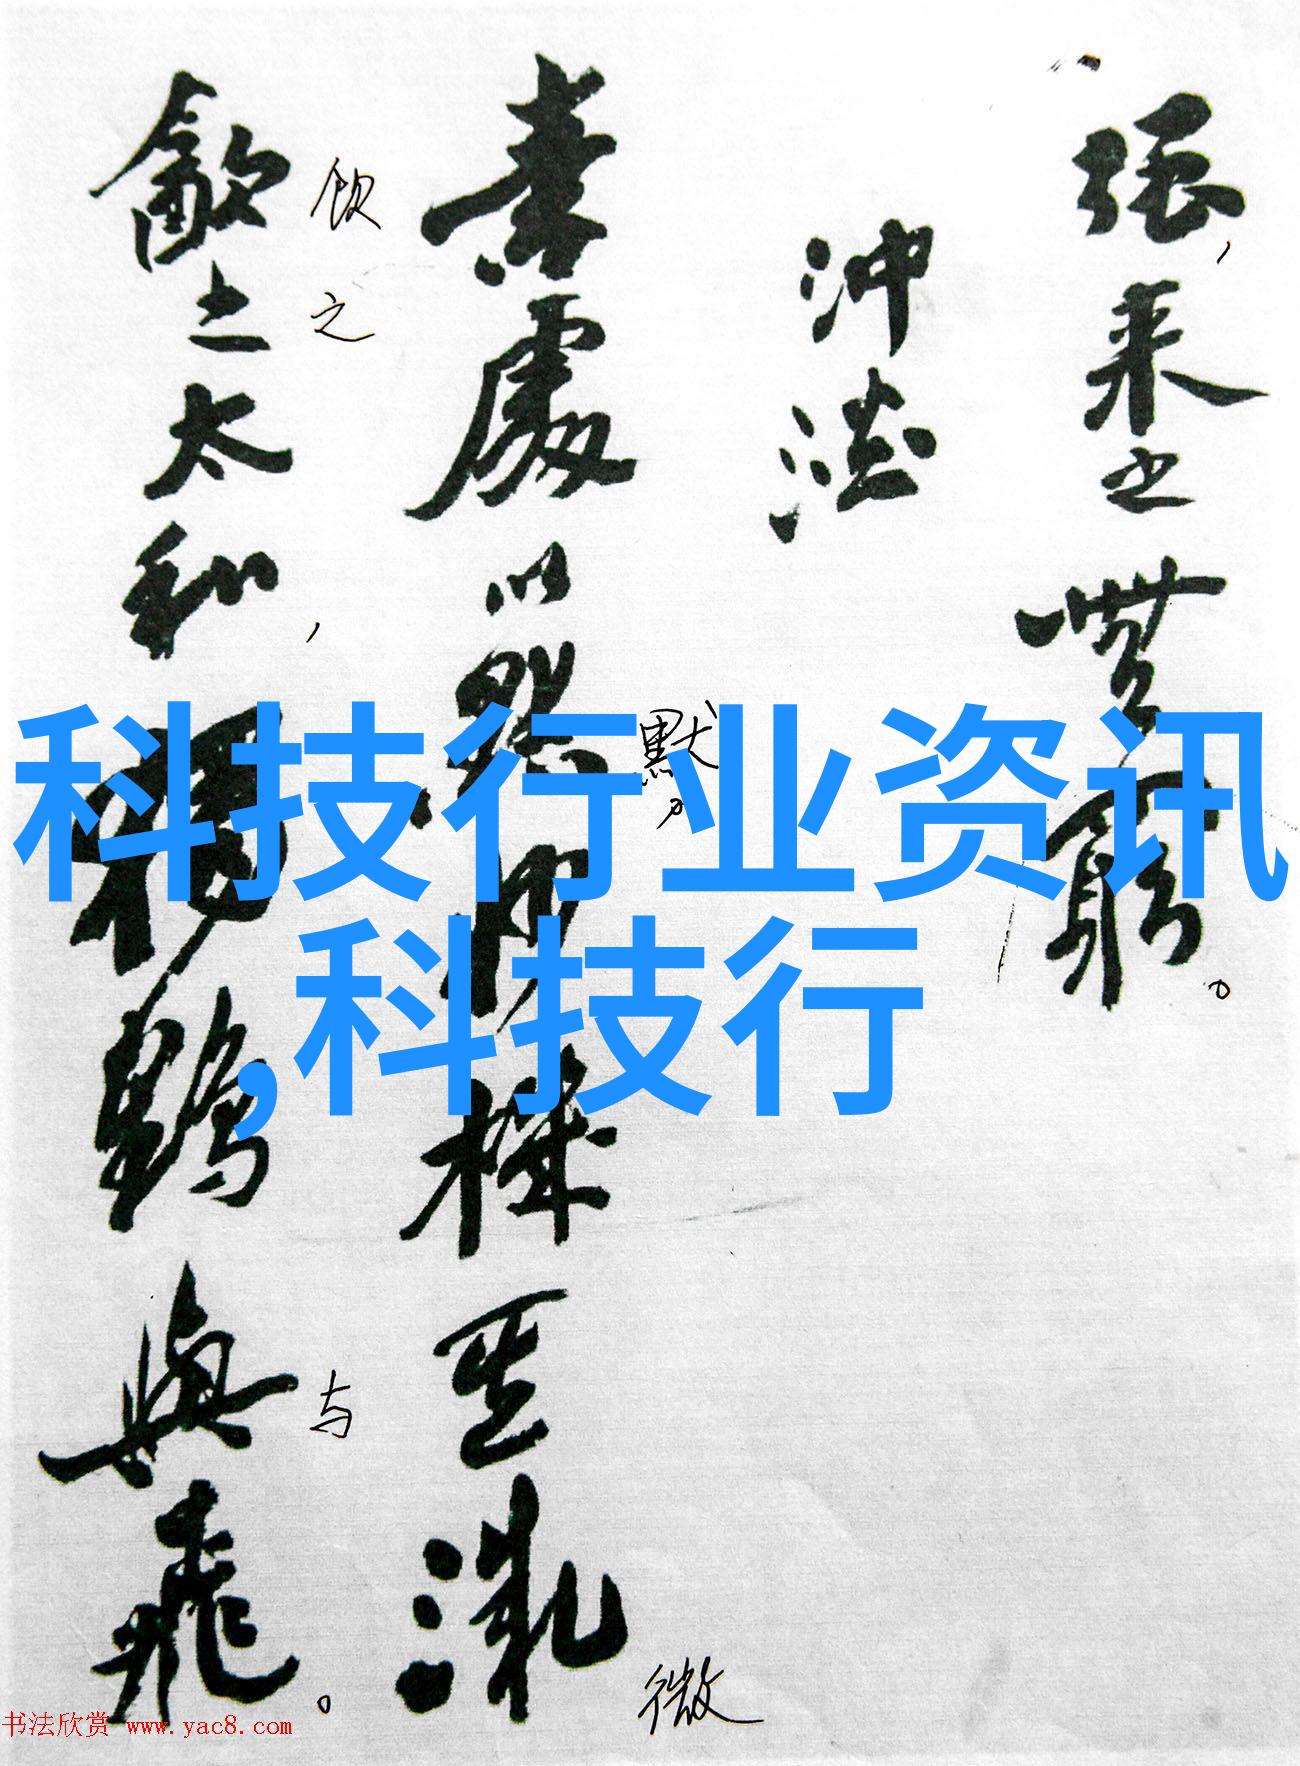 强,来之無窮。
冲淡
素處以默妙機其微
默。
微
飲之太和,獨鶴與飛。
饮之
与
科技行业资讯
,科技行
书法欣赏 www.yac8.com